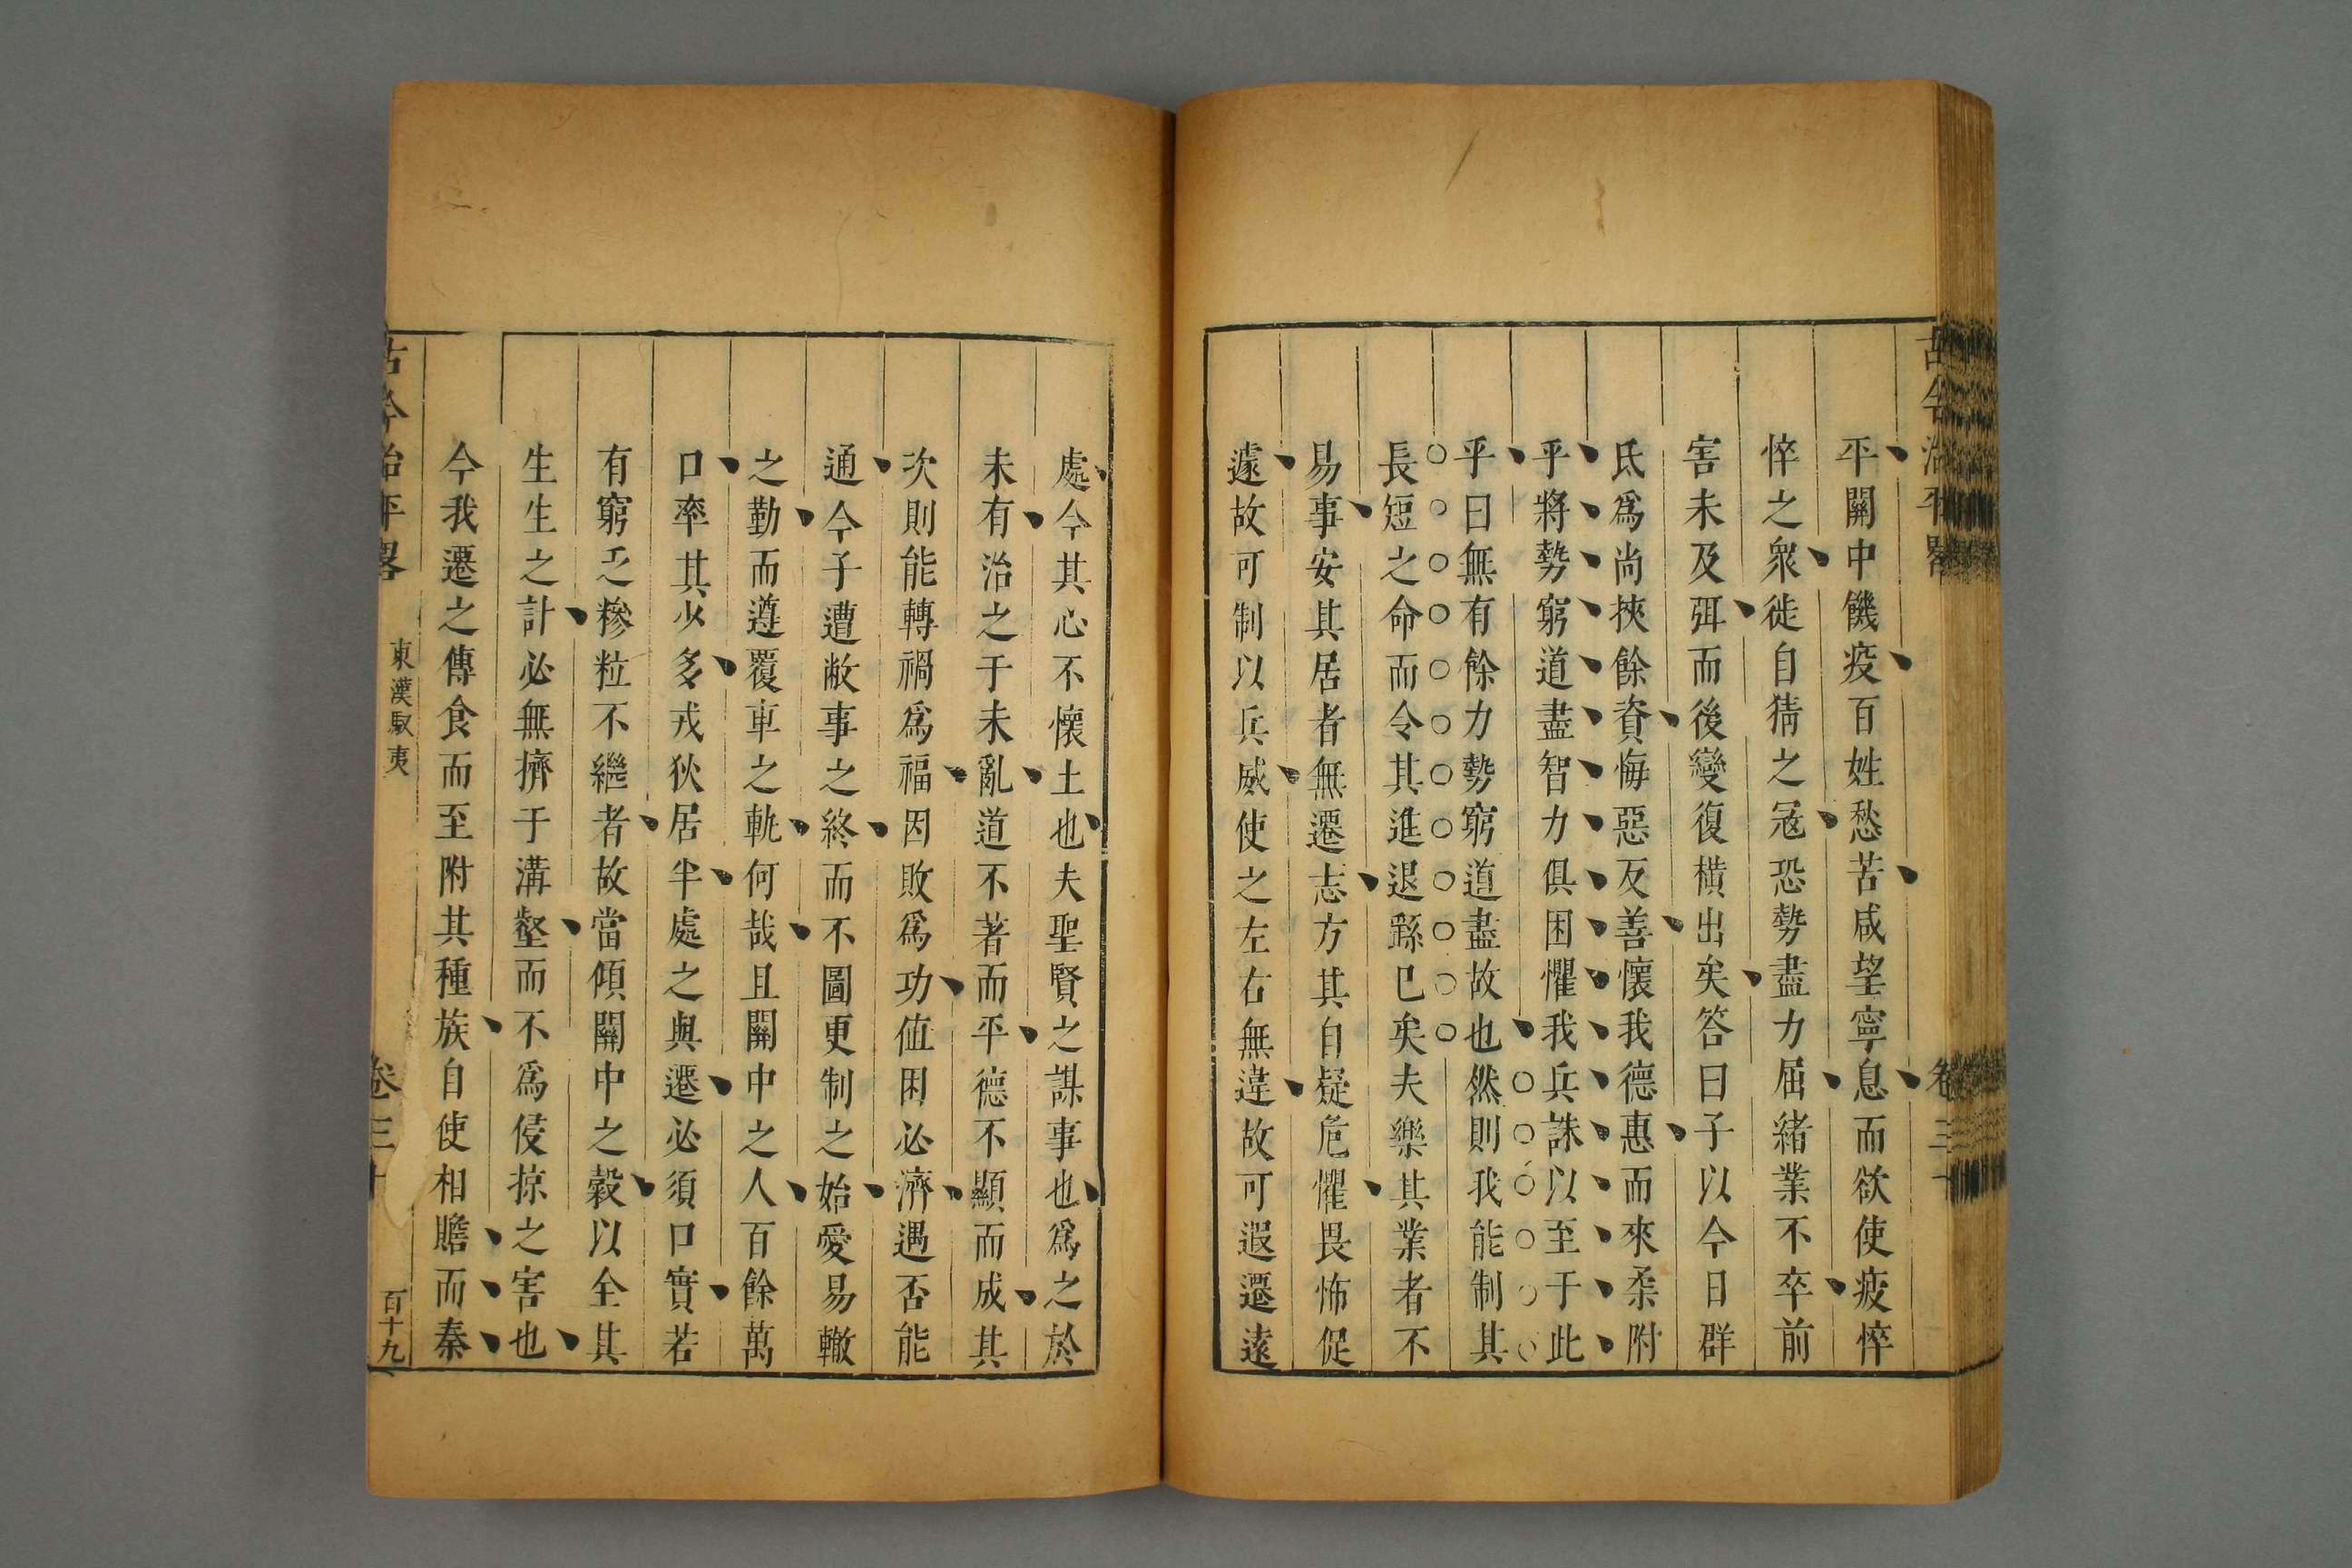 平關中饑疫百姓愁苦咸望寧息而欲使疲悴
悴之衆徙自猜之寇恐勢盡力屈緒業不卒前
害未及弭而後變復橫出矣答曰子以今日群
氐爲尚挾餘資悔惡反善懷我德惠而來柔附
乎將勢窮道盡智力俱困懼我兵誅以至于此
乎曰無有餘力勢窮道盡故也然則我能制其
長短之命而令其進退繇已矣夫樂其業者不
易事安其居者無遷志方其自疑危懼畏怖促
遽故可制以兵威使之左右無違故可遐遷遠
處今其心不懷土也夫聖賢之謀事也爲之於
未有治之于未亂道不著而平德不顯而成其
次則能轉禍爲福因敗爲功値困必濟遇否能
通今子遭敝事之終而不圖更制之始愛易轍
之勤而遵覆車之軌何哉且關中之人百餘萬
口率其少多戎狄居半處之與遷必須口實若
有窮乏糝粒不繼者故當傾關中之穀以全其
生生之計必無擠于溝壑而不爲侵掠之害也
今我遷之傳食而至附其種族自使相贍而秦
古今治平畧
東漢馭夷
卷三十
百十九